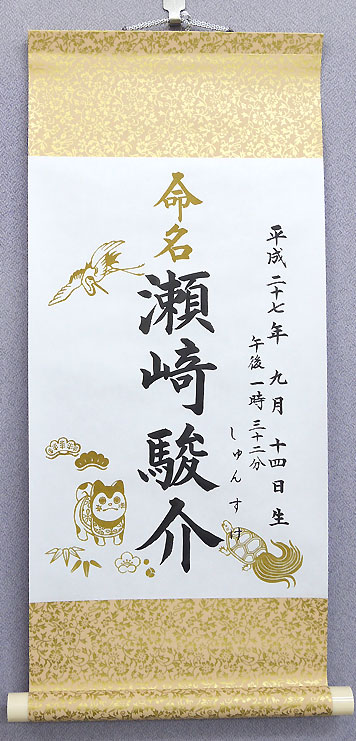 平成二十七年 九月 十四日生
午後一時 三十二分
命名
瀬﨑駿介
しゅんすけ